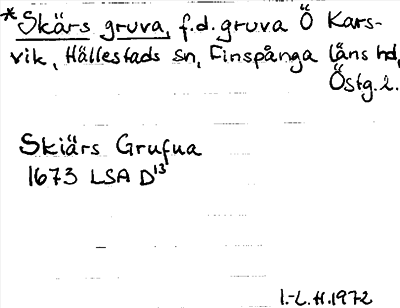 *Skärs gruva, f.d. gruva Ö Kars-
vik, Hällestads sn, Finspånga läns hd,
Östg. l.
Skiärs Grufua
1673 LSA D¹³
I.-L. H. 1972